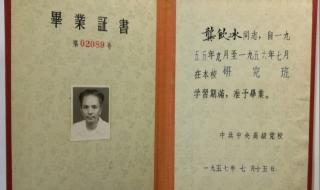 畢業証書
第02089号
龔飲冰同志,自一九
五五年九月至一九五六年七月
在本校 研究班
学習期滿,准予畢業。
中共中央高級党校
一九五七年七月十五日